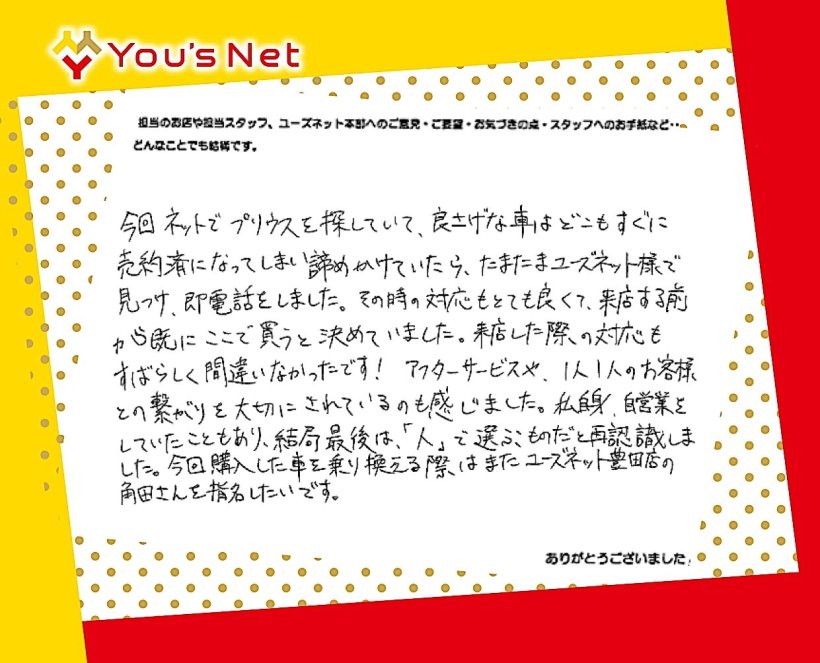 You's Net
担当のお店や担当スタッフ、ユーズネット本部へのご意見・ご要望・お気づきの点・スタッフへのお手紙など・・
どんなことでも結構です。
今回ネットでプリウスを探していて、良さげな車はどこもすぐに
売約済になってしまい諦めかけていたら、たまたまユーズネット様で
見つけ、即電話をしました。その時の対応もとても良くて、来店する前
から既にここで買うと決めていました。来店した際の対応も
すばらしく間違いなかったです！ アフターサービスや、1人1人のお客様
との繋がりを大切にされているのも感じました。私自身、自営業を
していたこともあり、結局最後は、「人」で選ぶものだと再認識しま
した。今回購入した車を乗り換える際はまたユーズネット豊田店の
角田さんを指名したいです。
ありがとうございました